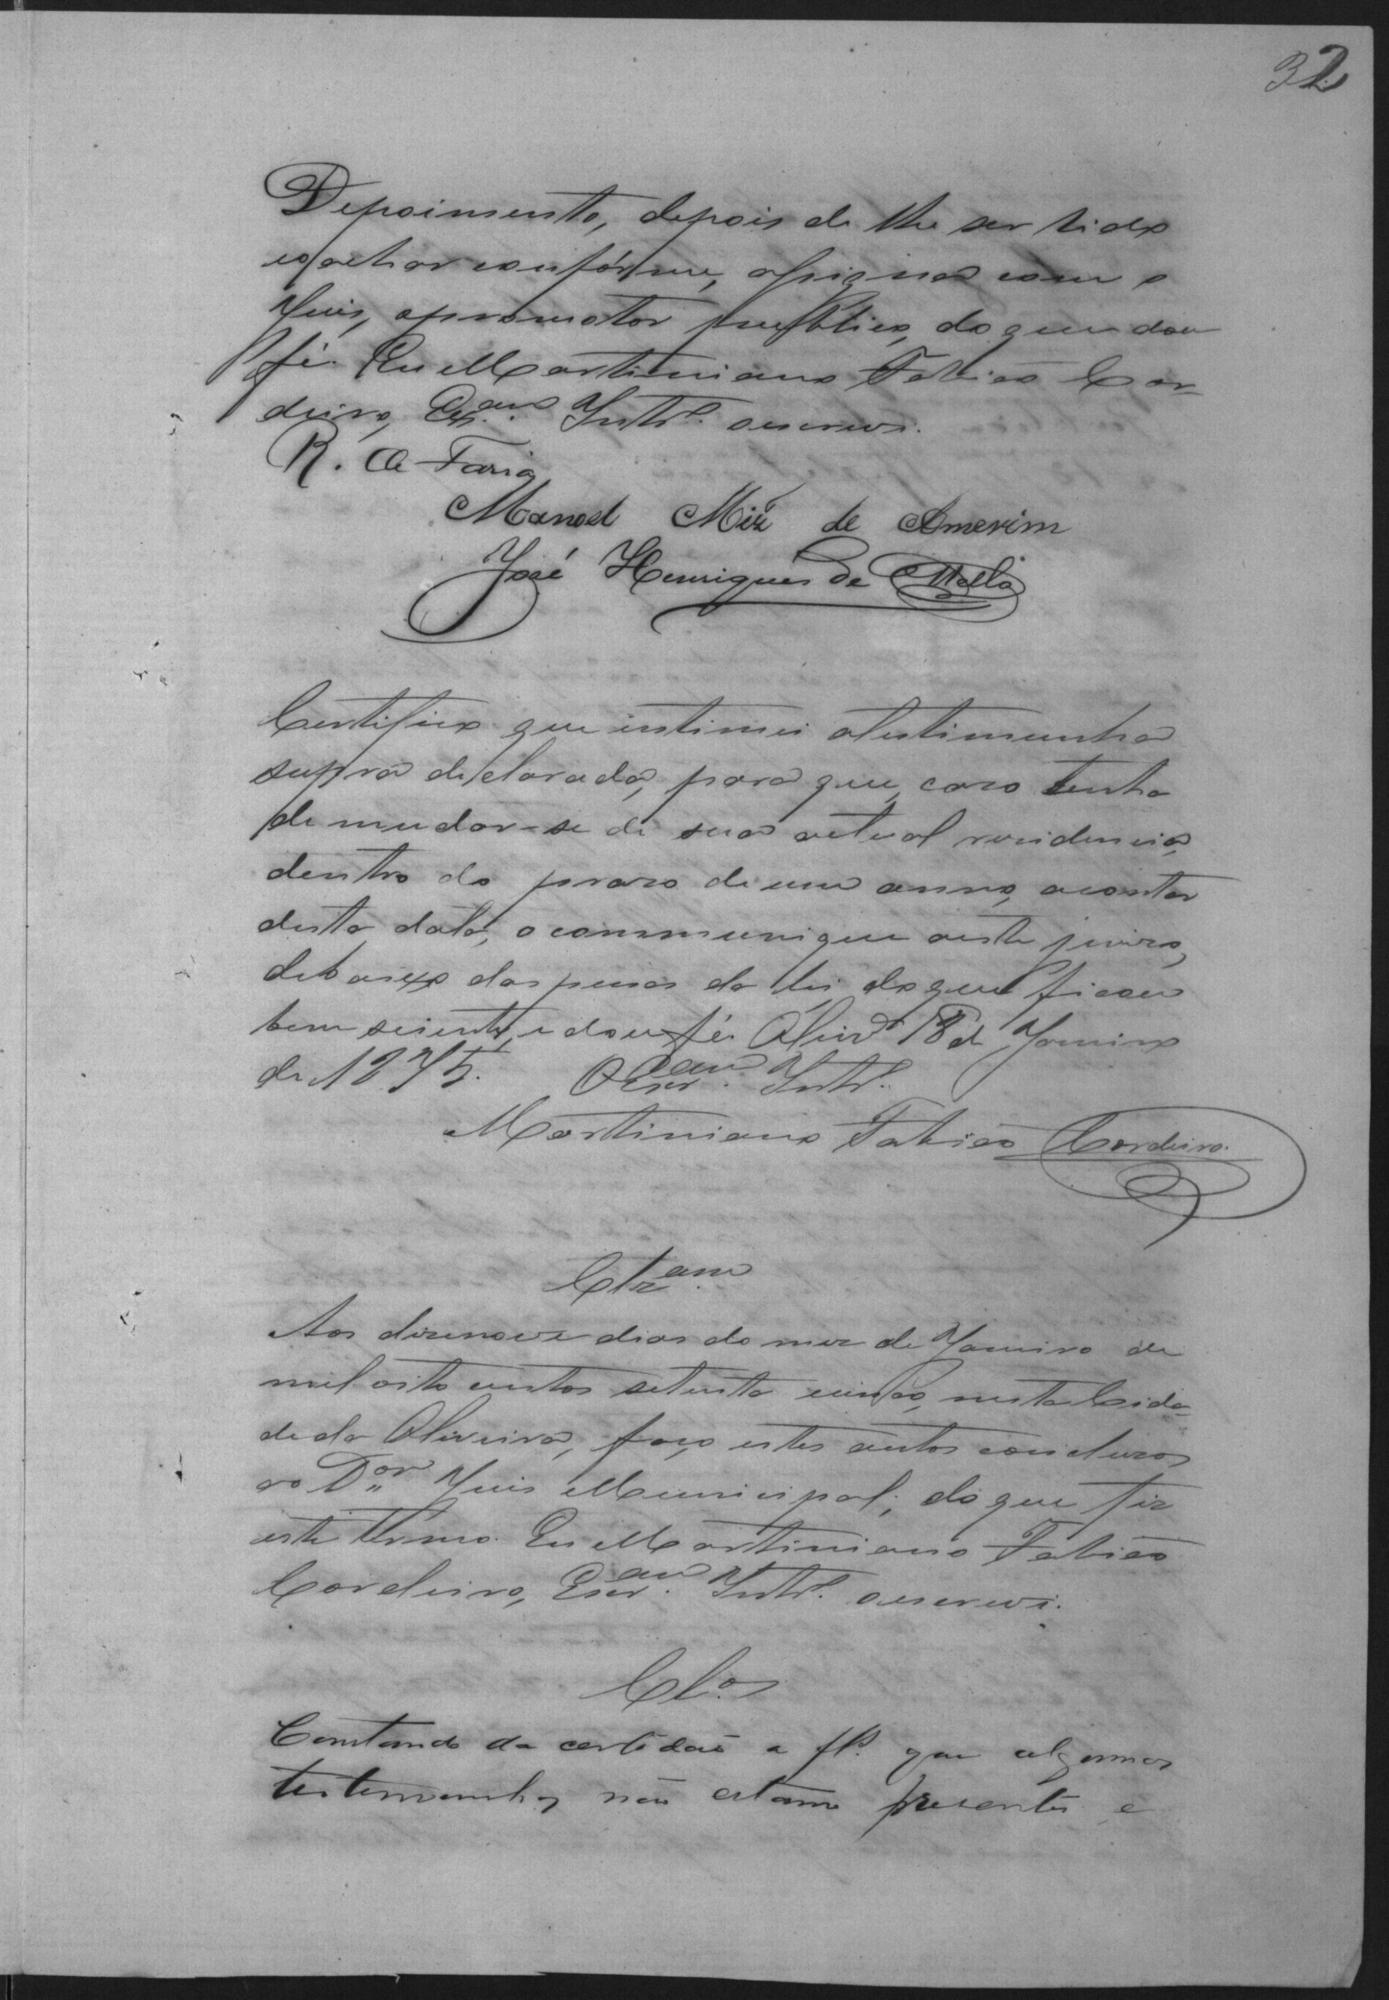 32
Depoimento, depois de lhe ser lido
e o achar conforme, assigna com o
Juis, o promotor publico, do que dou
fé. Eu Martiniano Fabião Cor-
deiro, Escam. Intr. o escrevi.
R. de Faria
Manoel Miz de Amorim
José Henriques de Mello
Certifico que intimei a testimunha
supra declarada, para que, caso tenha
de mudar-se de sua actual residencia,
dentro do praso de um anno, a contar
desta data, o communique a este juiso,
debaixo das penas da lei, do que ficou
bem sciente, e dou fé. Olivra 18 de Janeiro
de 1875. O Escram. Intr.
Martiniano Fabião Cordeiro.
Clzam
Aos disenove dias do mez de Janeiro de
mil oito centos setenta e cinco, nesta Cida-
de da Oliveira, faço estes autos conclusos
ao Dor Juis Municipal; do que fiz
este termo. Eu Martiniano Fabião
Cordeiro, Escram. Intr. o escrevi.
Clos
Constando da certidão a fls. que algumas
testemunhas não estam presentes e